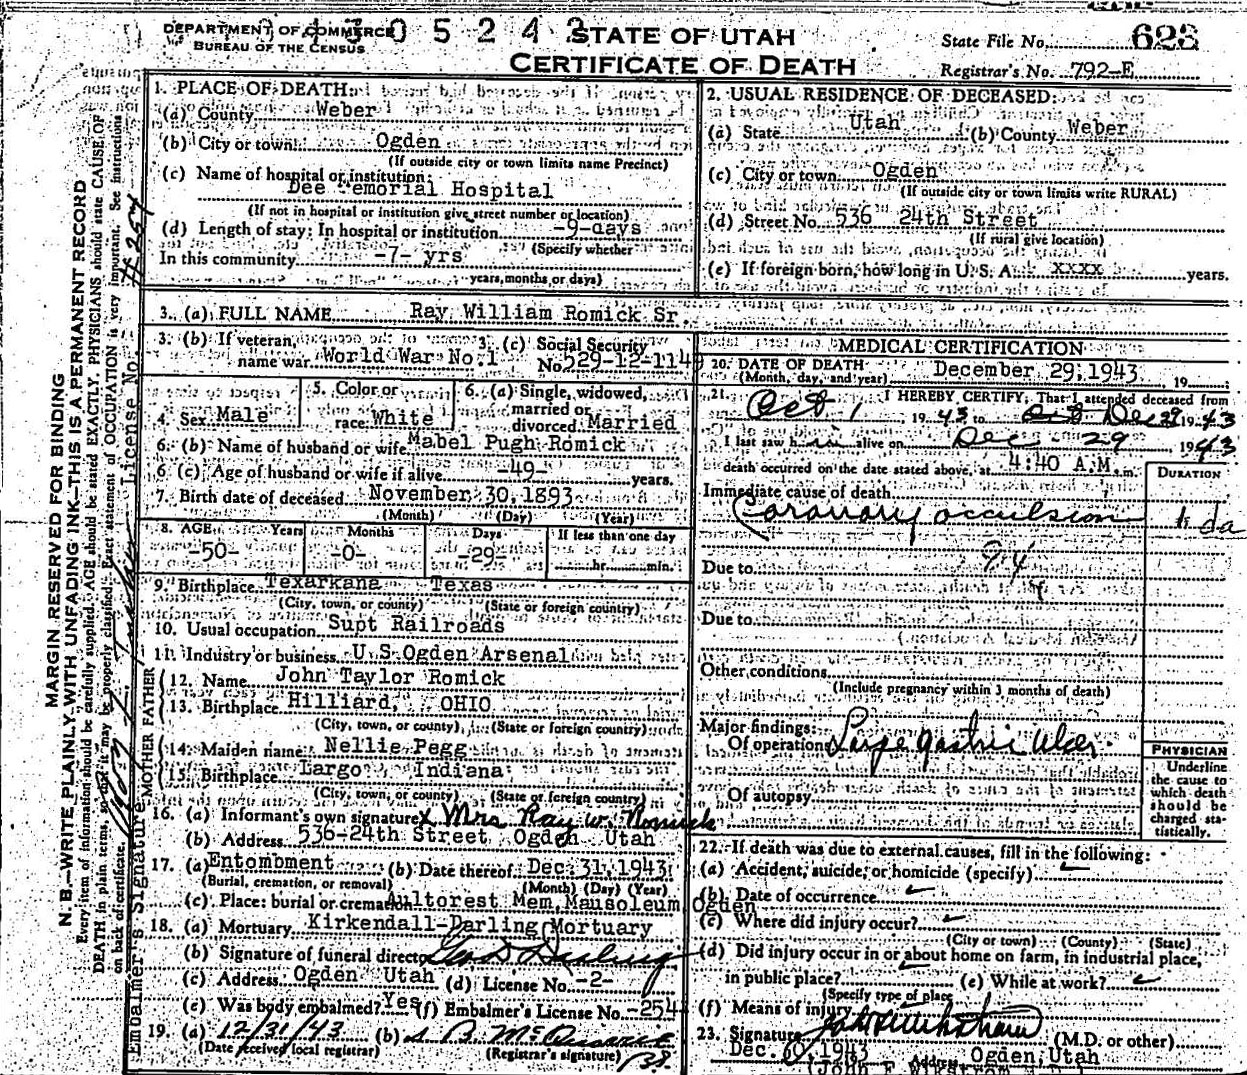 DEPARTMENT OF COMMERCE
BUREAU OF THE CENSUS
STATE OF UTAH
CERTIFICATE OF DEATH
State File No. 623
Registrar's No. 792-E
MARGIN RESERVED FOR BINDING
N. B.—WRITE PLAINLY, WITH UNFADING INK—THIS IS A PERMANENT RECORD
Every item of information should be carefully supplied. AGE should be stated EXACTLY. PHYSICIANS should state CAUSE OF
DEATH in plain terms, so that it may be properly classified. Exact statement of OCCUPATION is very important. See instructions
on back of certificate.
Embalmer's Signature License No. #254
1. PLACE OF DEATH:
(a) County Weber
(b) City or town Ogden
(If outside city or town limits name Precinct)
(c) Name of hospital or institution:
Dee Memorial Hospital
(If not in hospital or institution give street number or location)
(d) Length of stay: In hospital or institution -9-days
(Specify whether
In this community -7- yrs
years, months or days)
2. USUAL RESIDENCE OF DECEASED:
(a) State Utah (b) County Weber
(c) City or town Ogden
(If outside city or town limits write RURAL)
(d) Street No. 536 24th Street
(If rural give location)
(e) If foreign born, how long in U. S. A. xxxx years.
3. (a) FULL NAME Ray William Romick Sr.
3. (b) If veteran, name war World War No.1
3. (c) Social Security No. 529-12-114
4. Sex Male
5. Color or race White
6. (a) Single, widowed, married or divorced Married
6. (b) Name of husband or wife Mabel Pugh Romick
6 (c) Age of husband or wife if alive -49- years.
7. Birth date of deceased November 30, 1893
(Month) (Day) (Year)
8. AGE Years Months Days If less than one day
-50- -0- -29- hr. min.
9. Birthplace Texarkana Texas
(City, town, or county) (State or foreign country)
10. Usual occupation Supt Railroads
11. Industry or business U S Ogden Arsenal
FATHER
12. Name John Taylor Romick
13. Birthplace Hilliard, OHIO
(City, town, or county) (State or foreign country)
MOTHER
14. Maiden name Nellie Pegg
15. Birthplace Largo Indiana
(City, town, or county) (State or foreign country)
16. (a) Informant's own signature x Mrs Ray W. Romick
(b) Address 536-24th Street, Ogden Utah
17. (a) Entombment (b) Date thereof Dec. 31, 1943
(Burial, cremation, or removal) (Month) (Day) (Year)
(c) Place: burial or cremation Aultorest Mem. Mausoleum Ogden
18. (a) Mortuary Kirkendall-Darling Mortuary
(b) Signature of funeral director Geo D Darling
(c) Address Ogden Utah (d) License No. -2-
(e) Was body embalmed? Yes (f) Embalmer's License No. -254
19. (a) 12/31/43 (b)
(Date received local registrar) (Registrar's signature)
MEDICAL CERTIFICATION
20. DATE OF DEATH December 29, 1943, 19
(Month, day, and year)
21. I HEREBY CERTIFY, That I attended deceased from
Oct 1, 1943 to Dec 29 1943
I last saw him alive on Dec 29 1943
death occurred on the date stated above, at 4:40 A.M. m.
DURATION
Immediate cause of death
Coronary occulsion 1 da
Due to 94
Due to
Other conditions
(Include pregnancy within 3 months of death)
Major findings:
Of operations Large gastric ulcer.
Of autopsy
PHYSICIAN
Underline
the cause to
which death
should be
charged sta-
tistically.
22. If death was due to external causes, fill in the following:
(a) Accident, suicide, or homicide (specify)
(b) Date of occurrence
(c) Where did injury occur?
(City or town) (County) (State)
(d) Did injury occur in or about home on farm, in industrial place,
in public place? (e) While at work?
(Specify type of place
(f) Means of injury
23. Signature (M.D. or other)
Dec. 1943 Address Ogden, Utah
(John F. Wikstrom M.D.)